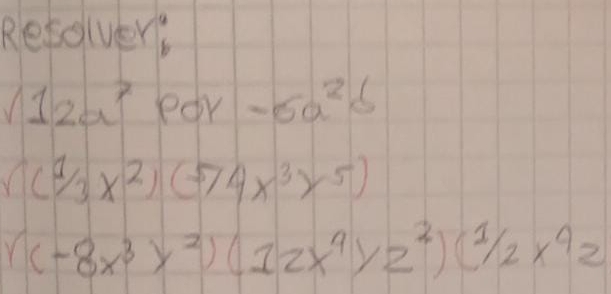 Resolver:
√12a⁷ por -6a²b
√(1/3x²)(5/4x³y⁵)
√(-8x³y²)(12x⁹yz²)(1/2x⁹z